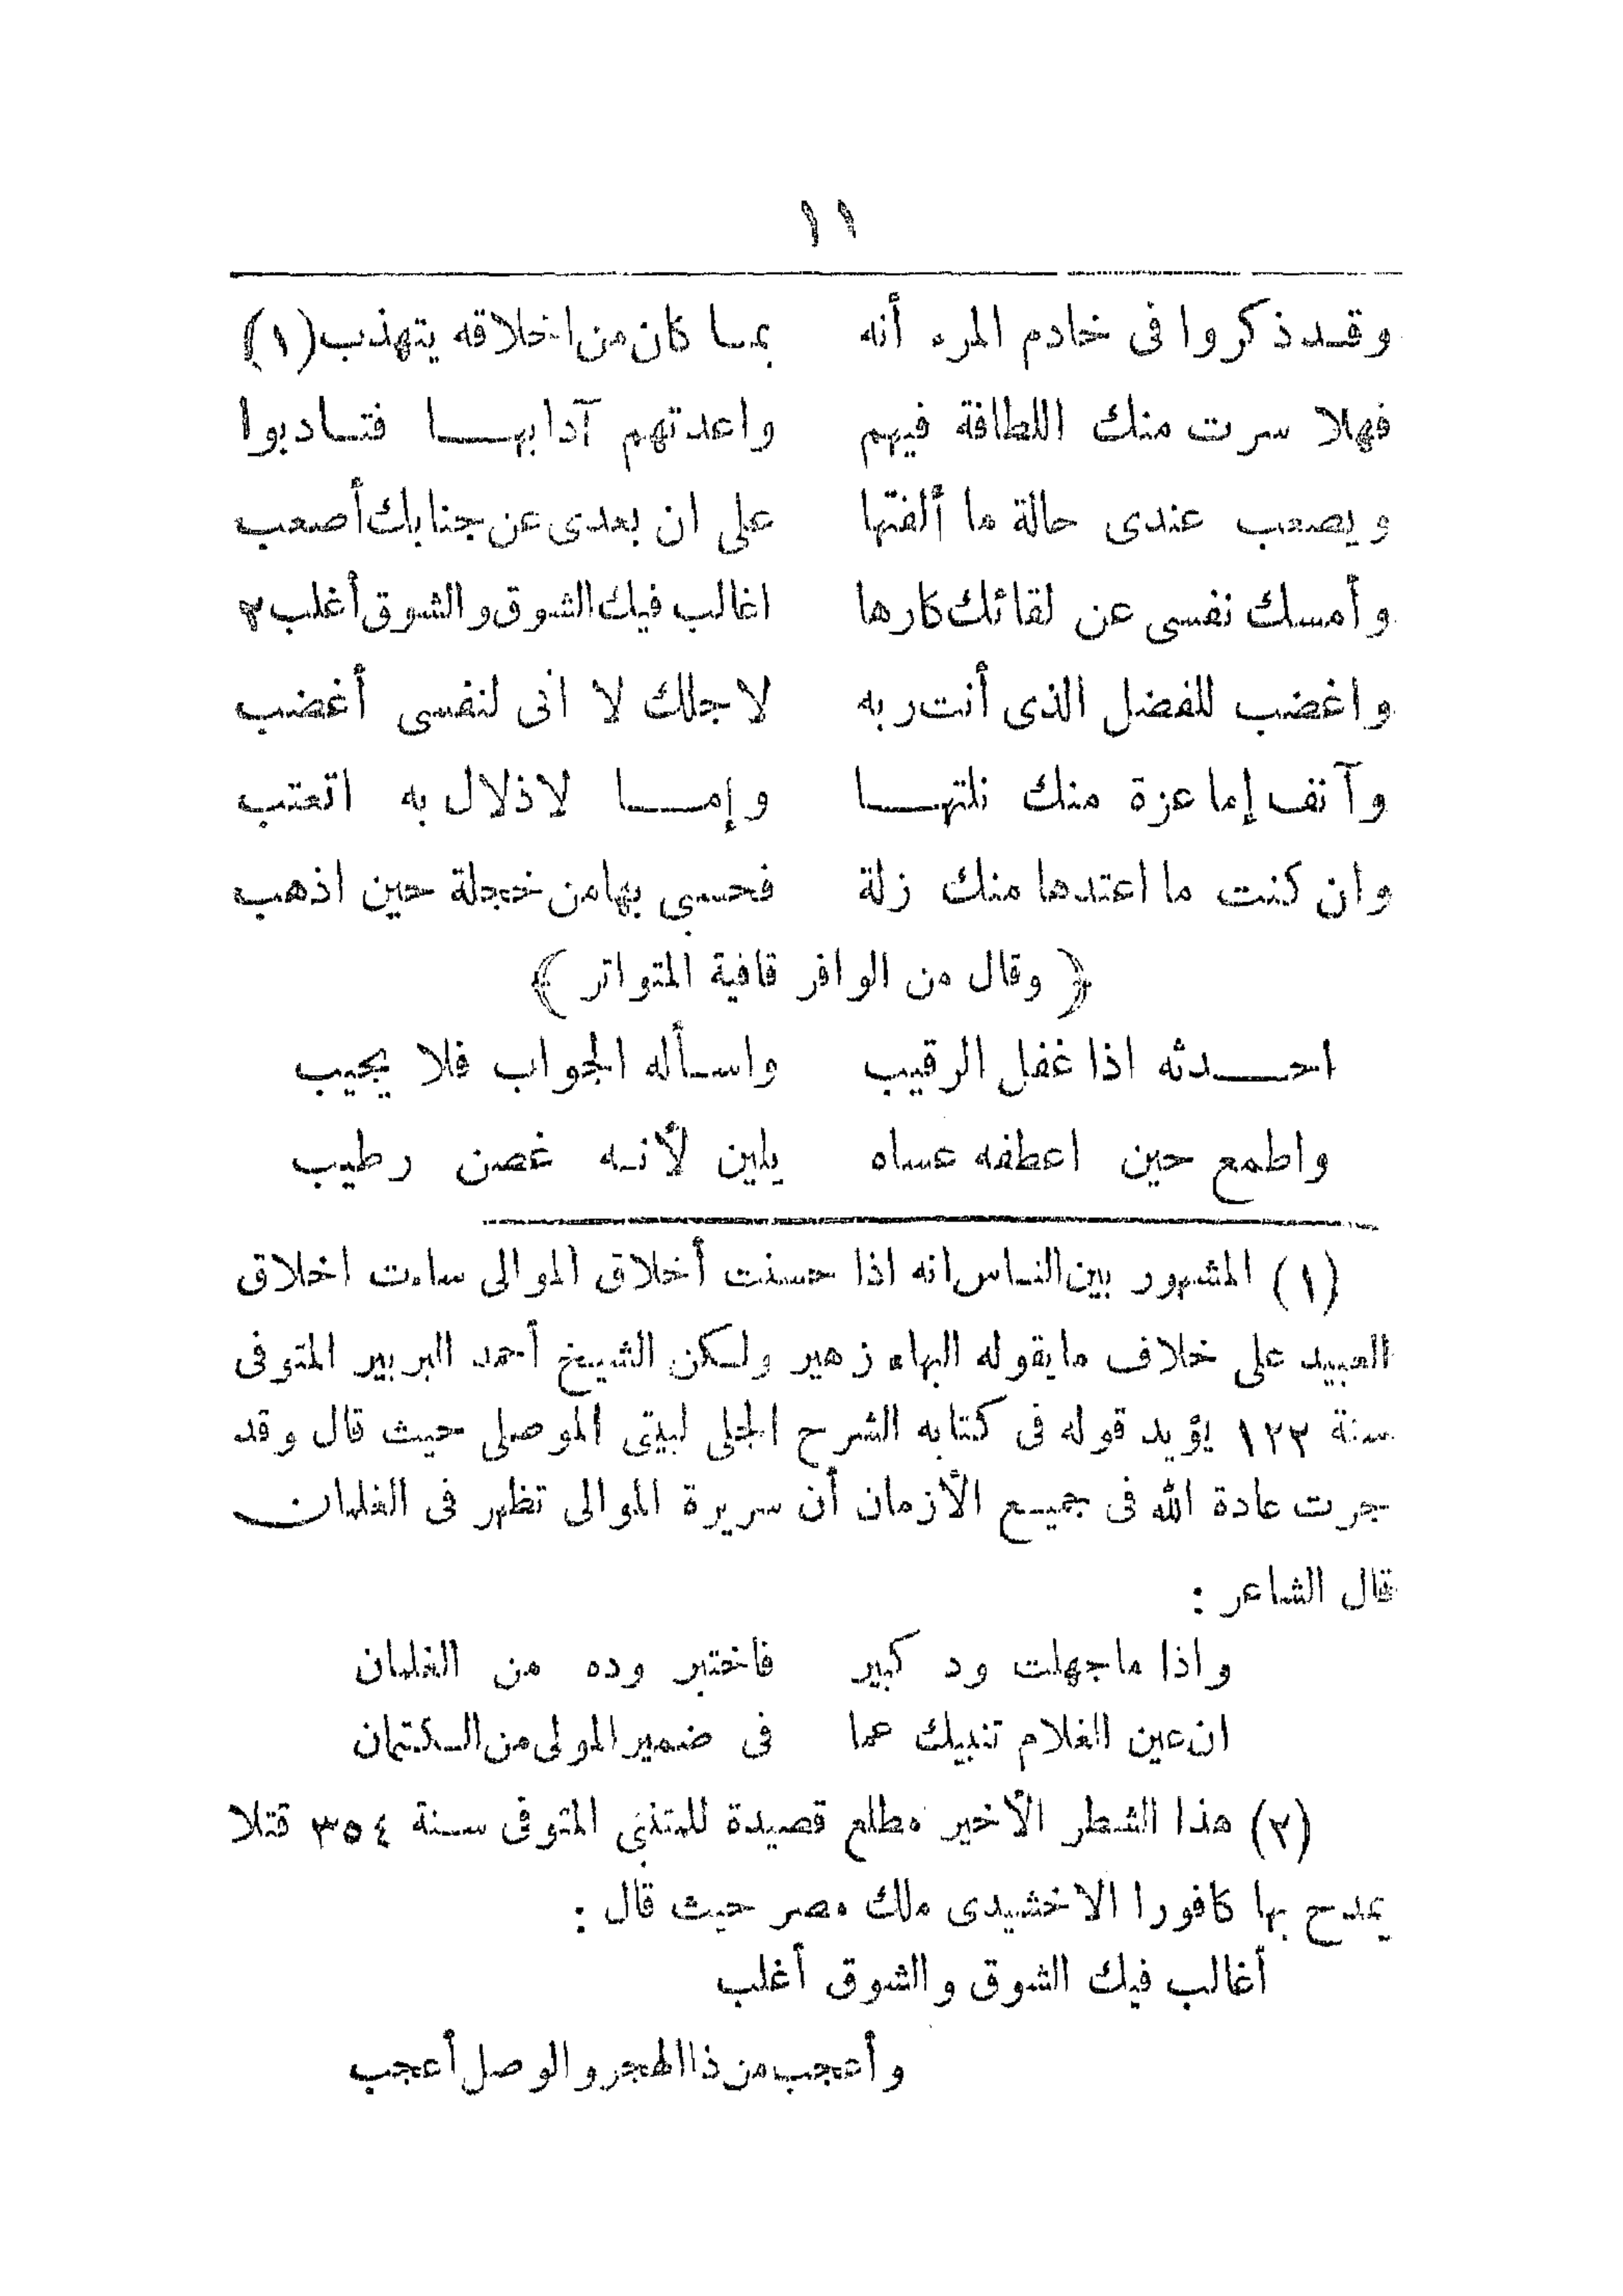 ١١
وقد ذكروا فى خادم المرء أنه بما كان من اخلاقه يتهذب (١)
فهلا سرت منك اللطافة فيهم واعدتهم آدابها فتادبوا
ويصعب عندى حالة ما ألفتها على ان بعدى عن جنابك أصعب
وأمسك نفسى عن لقائك كارها اغالب فيك الشوق والشوق أغلب ٢
واغضب للفضل الذى أنت ربه لاجلك لا انى لنفسى أغضب
وآنف إما عزة منك نلتها وإما لاذلال به اتعتب
وان كنت ما اعتدها منك زلة فحسبى بها من خجلة حين اذهب
﴿ وقال من الوافر قافية المتواتر ﴾
احدثه اذا غفل الرقيب واسأله الجواب فلا يجيب
واطمع حين اعطفه عساه يلين لأنه غصن رطيب
(١) المشهور بين الناس انه اذا حسنت أخلاق الموالى ساءت اخلاق
العبيد على خلاف ما يقوله البهاء زهير ولكن الشيخ أحمد البربير المتوفى
سنة ١٢٢ يؤيد قوله فى كتابه الشرح الجلى لبيتى الموصلى حيث قال وقد
جرت عادة الله فى جميع الأزمان أن سريرة الموالى تظهر فى الغلمان
قال الشاعر :
واذا ما جهلت ود كبير فاختبر وده من الغلمان
ان عين الغلام تنبيك عما فى ضمير المولى من الكتمان
(٢) هذا الشطر الأخير مطلع قصيدة للمتنبى المتوفى سنة ٣٥٤ قتلا
يمدح بها كافورا الاخشيدى ملك مصر حيث قال :
أغالب فيك الشوق والشوق أغلب
وأعجب من ذا الهجر والوصل أعجب